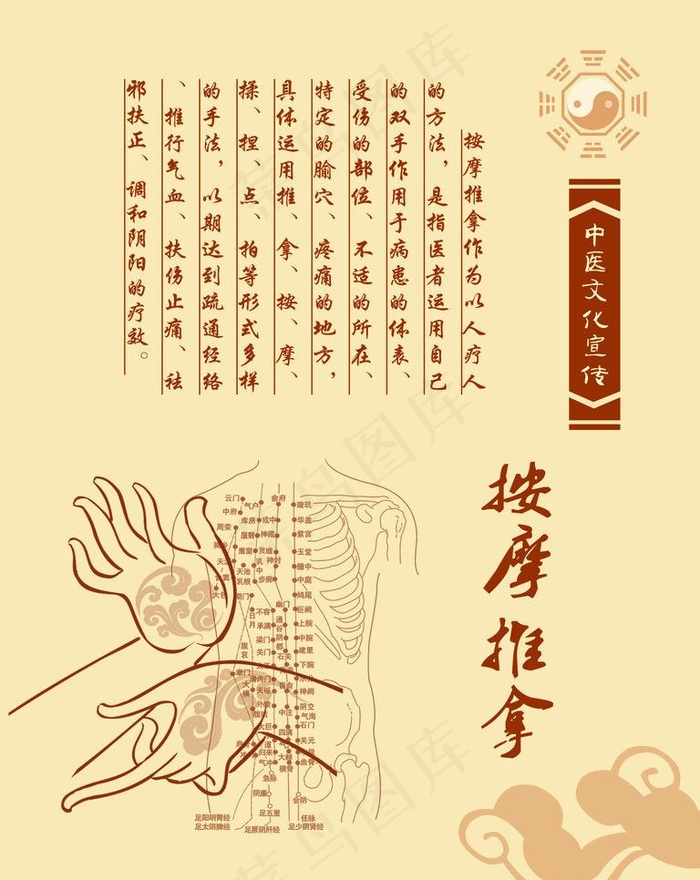 中医文化宣传
按摩推拿作为以人疗人
的方法，是指医者运用自己
的双手作用于病患的体表、
受伤的部位、不适的所在、
特定的腧穴、疼痛的地方，
具体运用推、拿、按、摩、
揉、捏、点、拍等形式多样
的手法，以期达到疏通经络
、推行气血、扶伤止痛、祛
邪扶正、调和阴阳的疗效。
按摩推拿
云门
气户
俞府
璇玑
中府
库房
或中
华盖
周荣
屋翳
神藏
紫宫
膺窗
灵墟
玉堂
神封
膻中
天池
乳中
乳根
步廊
中庭
大包
期门
鸠尾
幽门
不容
巨阙
日月
承满
通谷
上脘
梁门
阴都
中脘
腹哀
关门
石关
建里
下脘
章门
滑肉门
水分
大横
天枢
肓俞
神阙
外陵
中注
阴交
气海
石门
大巨
四满
关元
归来
气冲
横骨
曲骨
急脉
阴廉
会阴
足五里
足阳明胃经
足太阴脾经
足厥阴肝经
任脉
足少阴肾经
菜鸟图库